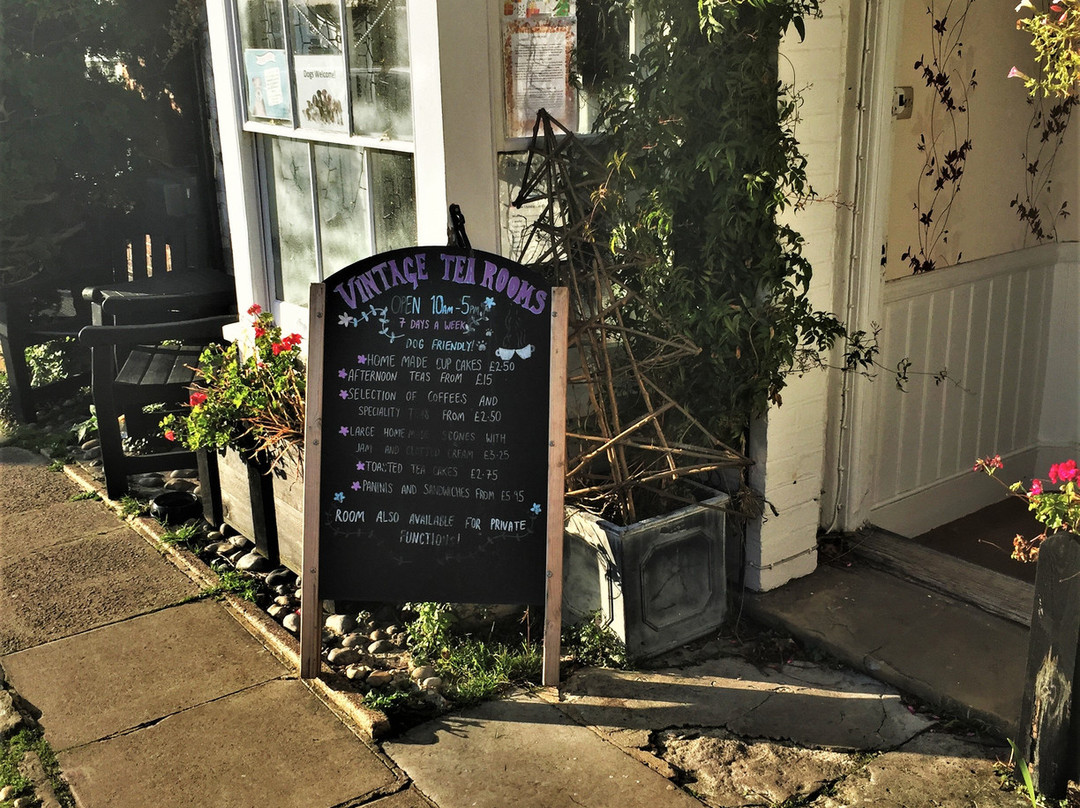 Dogs Welcome!
VINTAGE TEA ROOMS
OPEN 10AM-5PM
7 DAYS A WEEK
DOG FRIENDLY!
HOME MADE CUP CAKES £2.50
AFTERNOON TEAS FROM £15
SELECTION OF COFFEES AND
SPECIALITY TEAS FROM £2.50
LARGE HOME MADE SCONES WITH
JAM AND CLOTTED CREAM £3.25
TOASTED TEA CAKES £2.75
PANINIS AND SANDWICHES FROM £5.95
ROOM ALSO AVAILABLE FOR PRIVATE
FUNCTIONS!